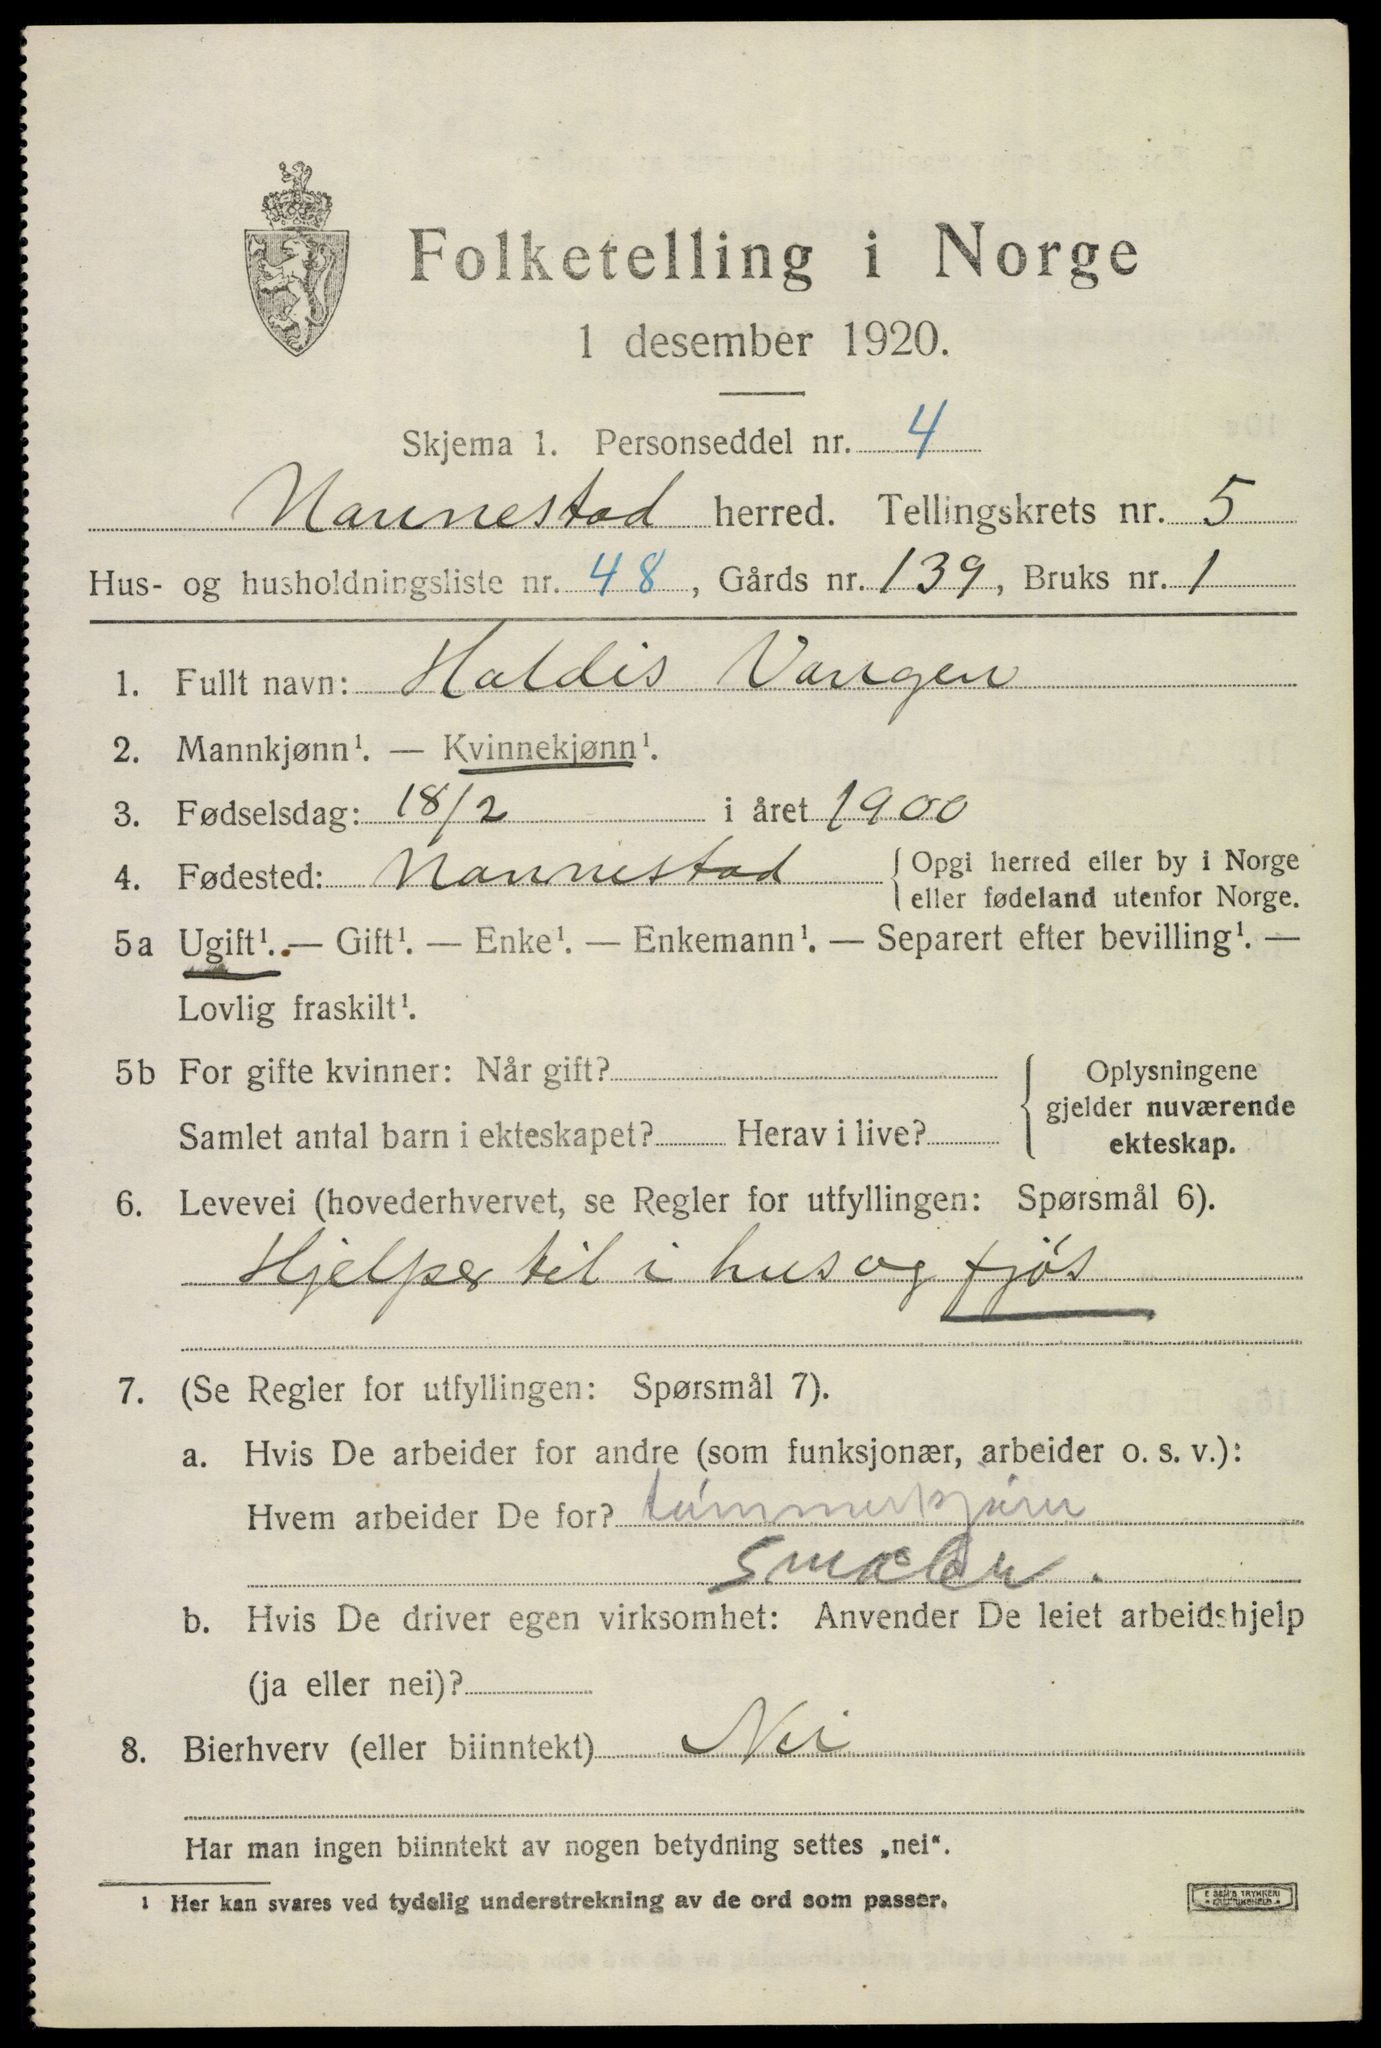 Folketelling i Norge
1 desember 1920.
Skjema 1. Personseddel nr. 4
Nannestad herred. Tellingskrets nr. 5
Hus- og husholdningsliste nr. 48, Gårds nr. 139, Bruks nr. 1
1. Fullt navn: Haldis Vangen
2. Mannkjønn¹. — Kvinnekjønn¹.
3. Fødselsdag: 18/2 i året 1900
4. Fødested: Nannestad {Opgi herred eller by i Norge
eller fødeland utenfor Norge.
5a Ugift¹. — Gift¹. — Enke¹. — Enkemann¹. — Separert efter bevilling¹. —
Lovlig fraskilt¹.
5b For gifte kvinner: Når gift?
Samlet antal barn i ekteskapet? Herav i live?
Oplysningene
gjelder nuværende
ekteskap.
6. Levevei (hovederhvervet, se Regler for utfyllingen: Spørsmål 6).
Hjelper til i hus og fjøs
7. (Se Regler for utfyllingen: Spørsmål 7).
a. Hvis De arbeider for andre (som funksjonær, arbeider o. s. v.):
Hvem arbeider De for? tømmerkjører
b. Hvis De driver egen virksomhet: Anvender De leiet arbeidshjelp
(ja eller nei)?
8. Bierhverv (eller biinntekt) Nei
Har man ingen biinntekt av nogen betydning settes „nei“.
¹ Her kan svares ved tydelig understrekning av de ord som passer.
E SEM'S TRYKKERI
FREDRIKSHALD